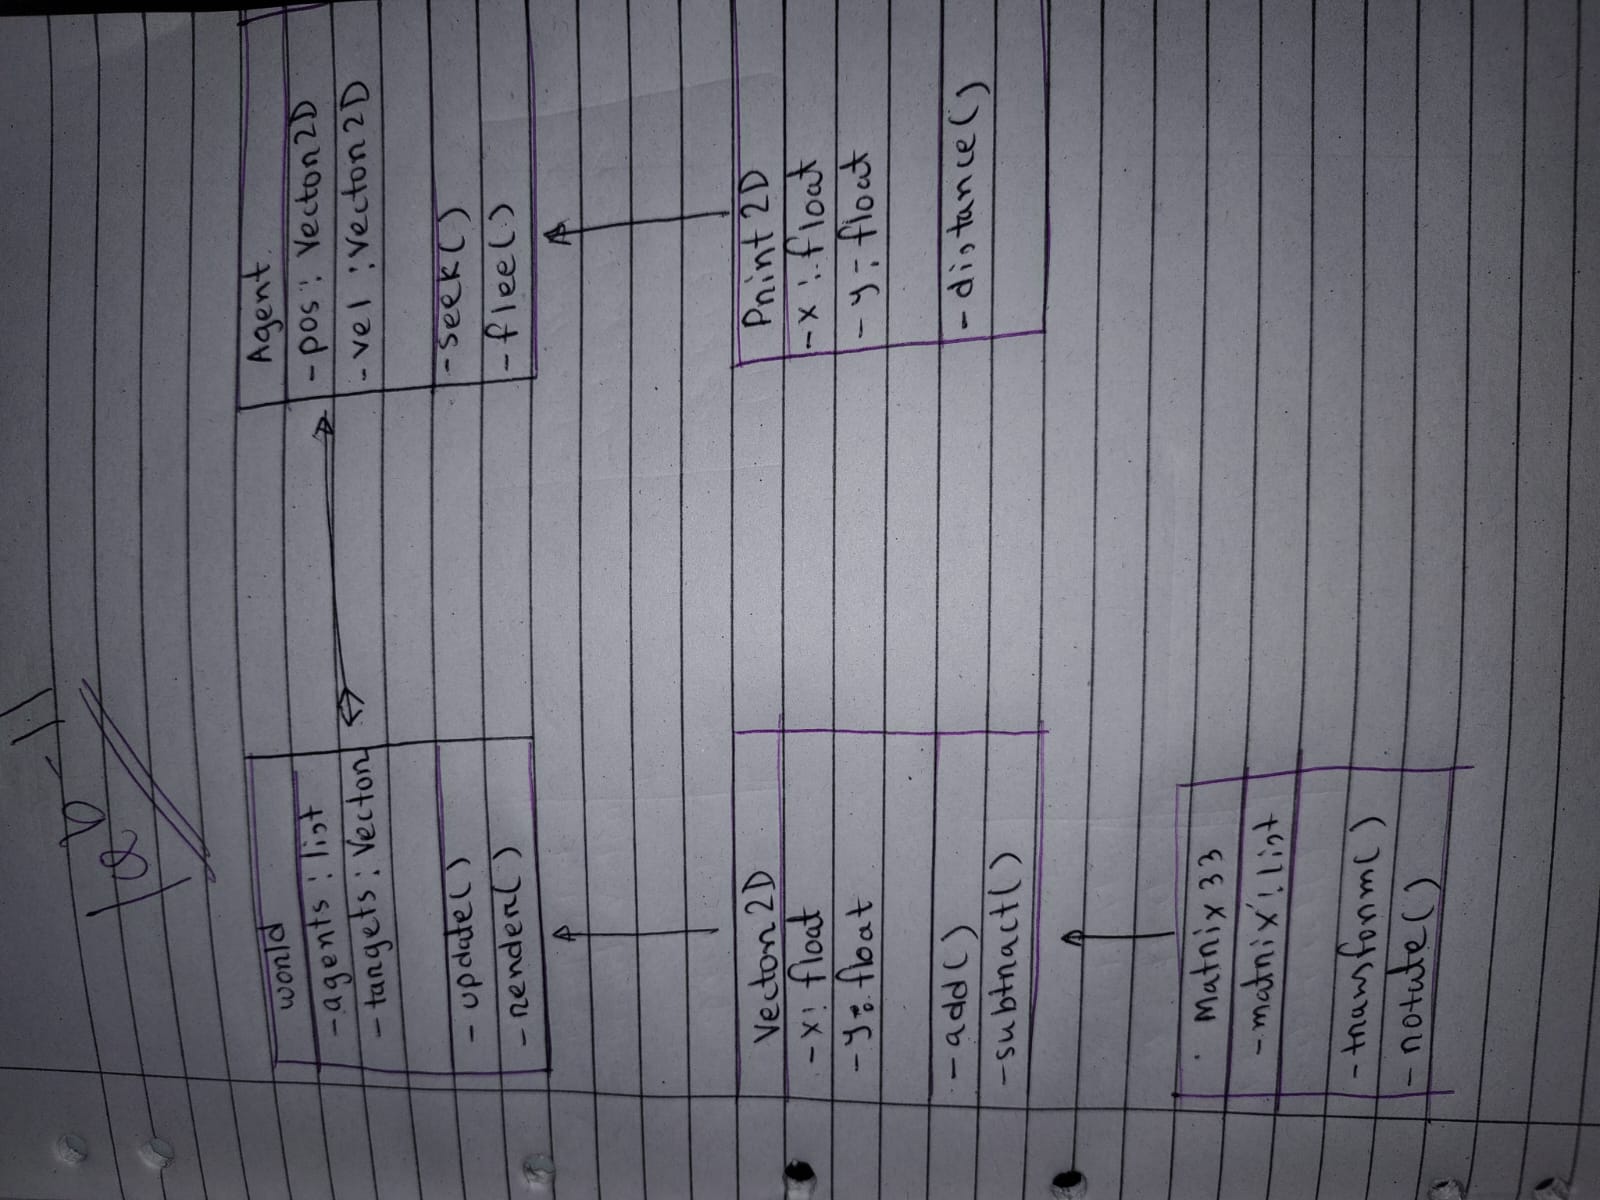 World
-agents : list
-targets : Vector
-update()
-render()
Agent.
-pos : Vector2D
-vel : Vector2D
-seek()
-flee()
Vector2D
-x : float
-y : float
-add()
-subtract()
Point 2D
-x : float
-y : float
-distance()
Matrix 33
-matrix : list
-transform()
-rotate()